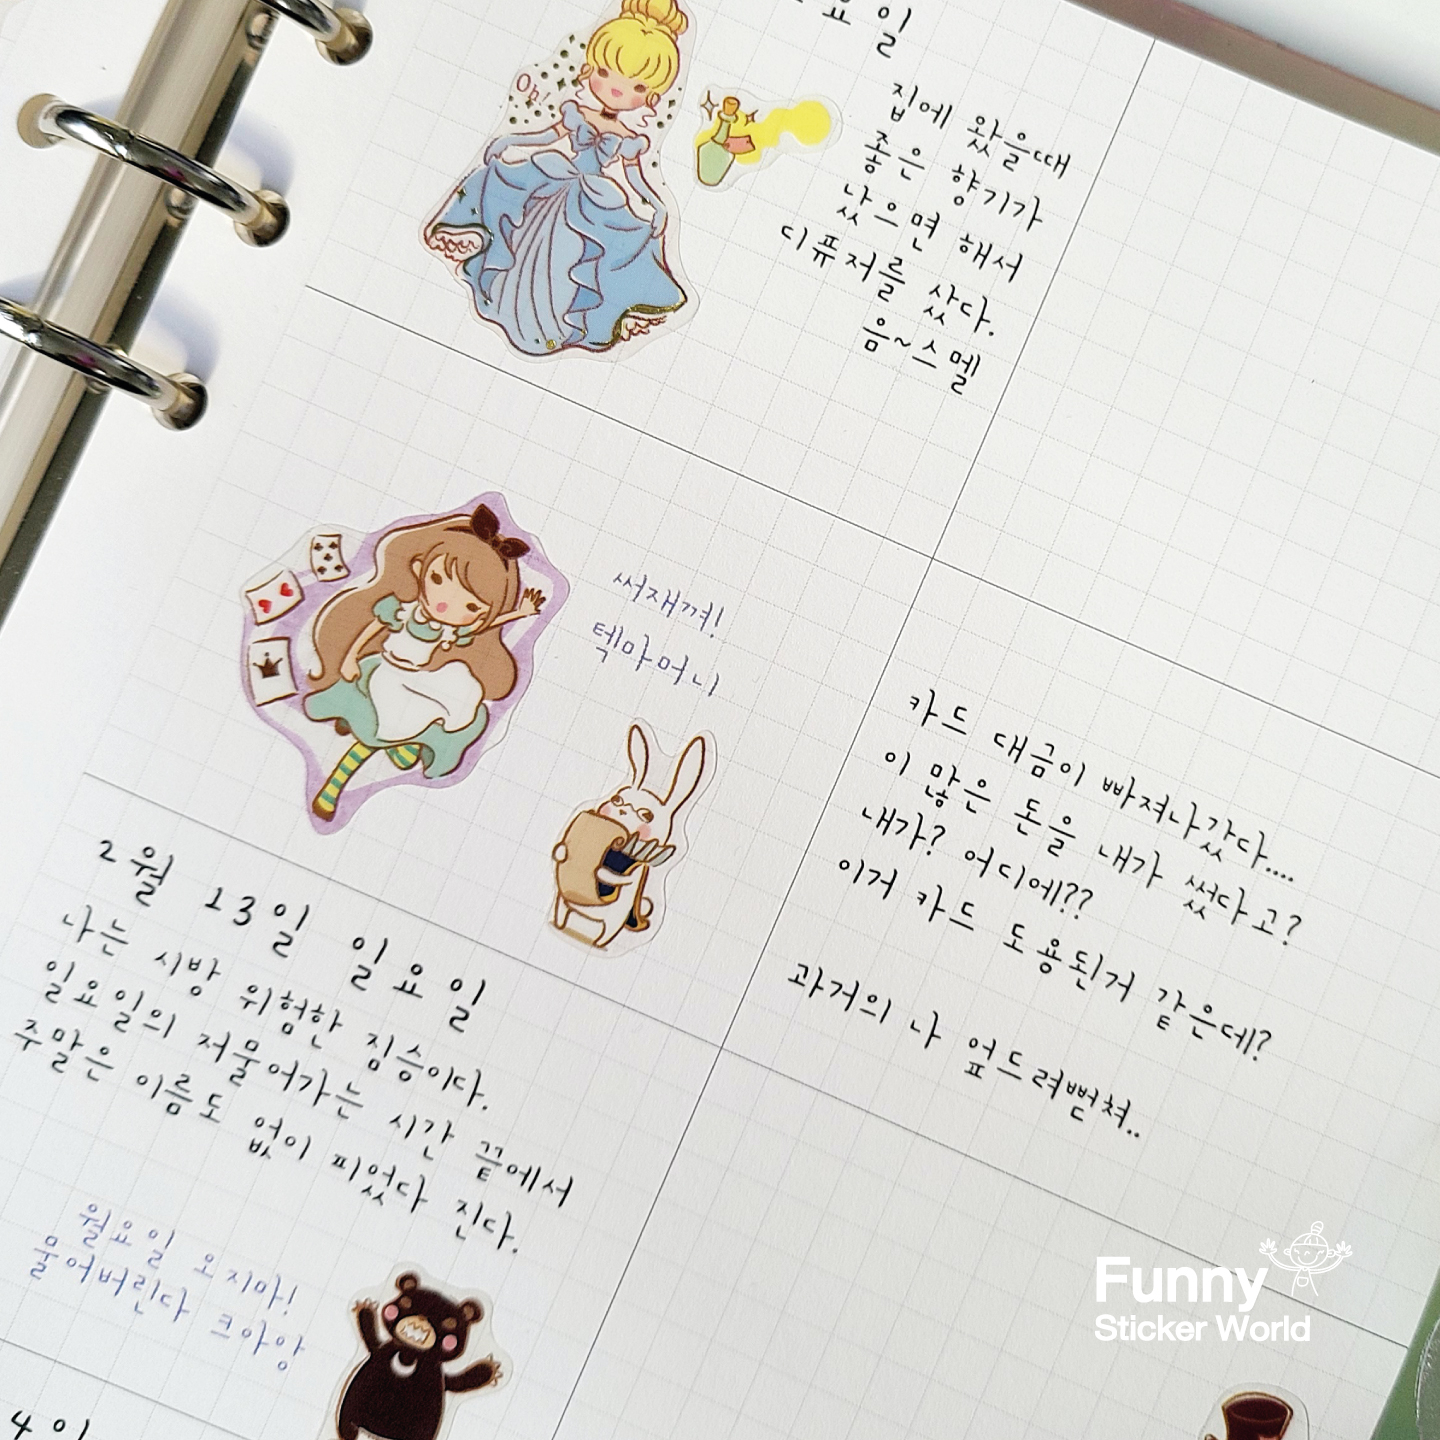 요일
Oh!
집에 왔을때
좋은 향기가
났으면 해서
디퓨저를 샀다.
음~스멜
써재껴!
텍마머니
카드 대금이 빠져나갔다....
이 많은 돈을 내가 썼다고?
내가? 어디에??
이거 카드 도용된거 같은데?
과거의 나 엎드려뻗쳐..
2월 13일 일요일
나는 시방 위험한 짐승이다.
일요일의 저물어가는 시간 끝에서
주말은 이름도 없이 피었다 진다.
월요일 오지마!
물어버린다 크아앙
4일
Funny
Sticker World